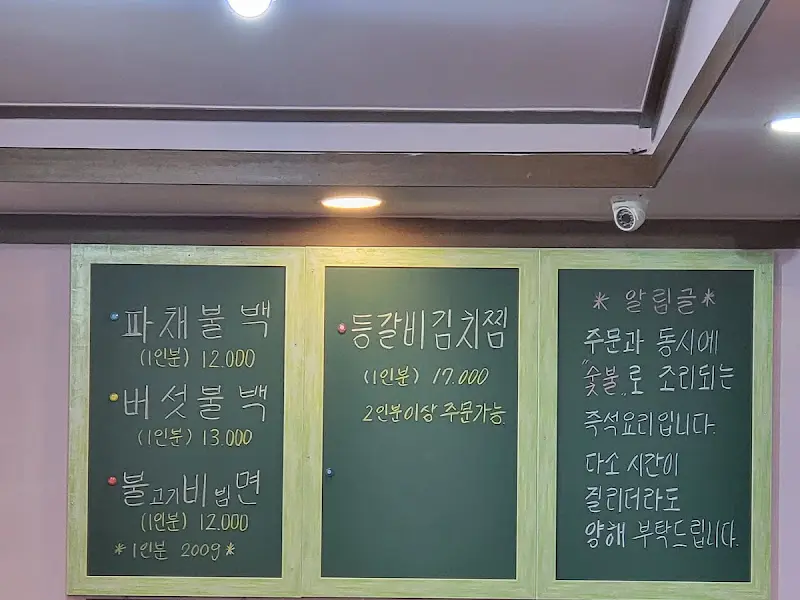 파채불백
(1인분) 12.000
버섯불백
(1인분) 13.000
불고기비빔면
(1인분) 12.000
*1인분 200g*
등갈비김치찜
(1인분) 17.000
2인분이상 주문가능
* 알림글 *
주문과 동시에
"숯불"로 조리되는
즉석요리입니다.
다소 시간이
질리더라도
양해 부탁드립니다.